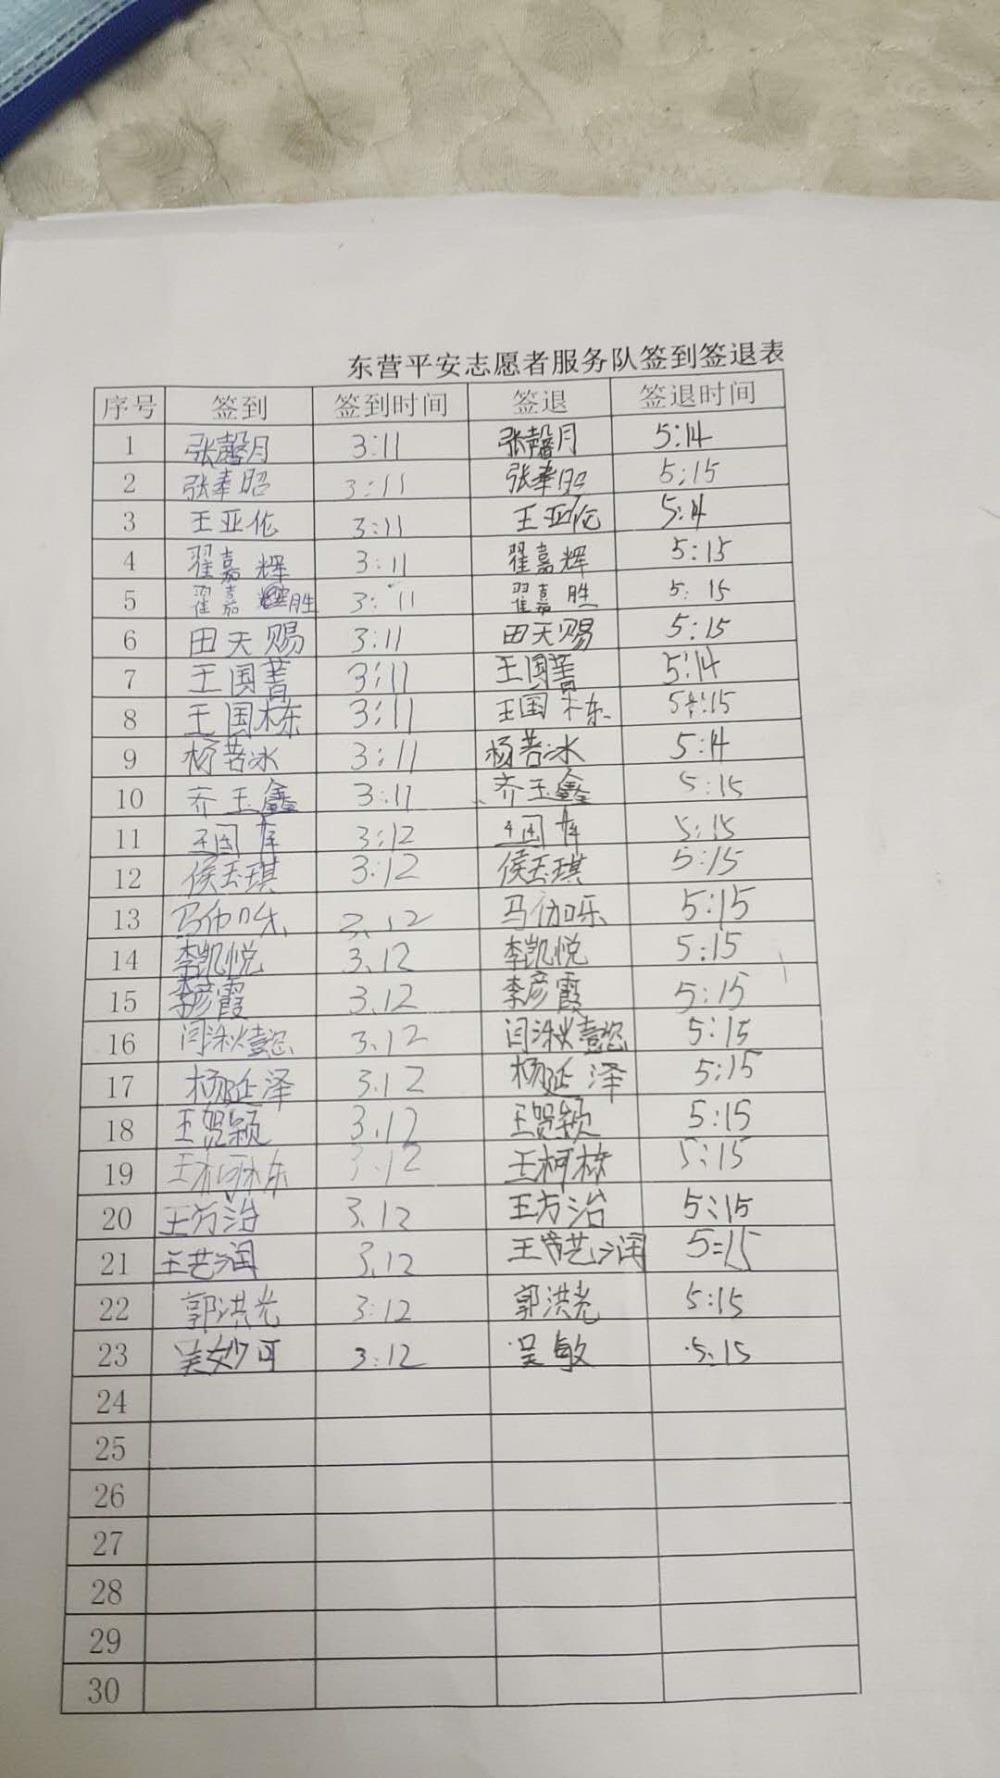 东营平安志愿者服务队签到签退表
序号 签到 签到时间 签退 签退时间
1 张馨月 3:11 张馨月 5:14
2 张奉昭 3:11 张奉昭 5:15
3 王亚伦 3:11 王亚伦 5:14
4 翟嘉辉 3:11 翟嘉辉 5:15
5 翟嘉胜 3:11 翟嘉胜 5:15
6 田天赐 3:11 田天赐 5:15
7 王国菁 3:11 王国菁 5:14
8 王国栋 3:11 王国栋 5:15
9 杨若冰 3:11 杨若冰 5:14
10 齐玉鑫 3:11 齐玉鑫 5:15
11 王国库 3:12 王国库 5:15
12 侯玉琪 3:12 侯玉琪 5:15
13 3.12 5:15
14 李凯悦 3.12 李凯悦 5:15
15 李彦霞 3.12 李彦霞 5:15
16 闫湫懿 3.12 闫湫懿 5:15
17 杨延泽 3.12 杨延泽 5:15
18 王贺颖 3.12 王贺颖 5:15
19 王柯栋 3.12 王柯栋 5:15
20 王方治 3.12 王方治 5:15
21 王艺润 3.12 王艺润 5=15
22 郭洪光 3:12 郭洪光 5:15
23 吴妙可 3:12 吴敏 5:15
24
25
26
27
28
29
30